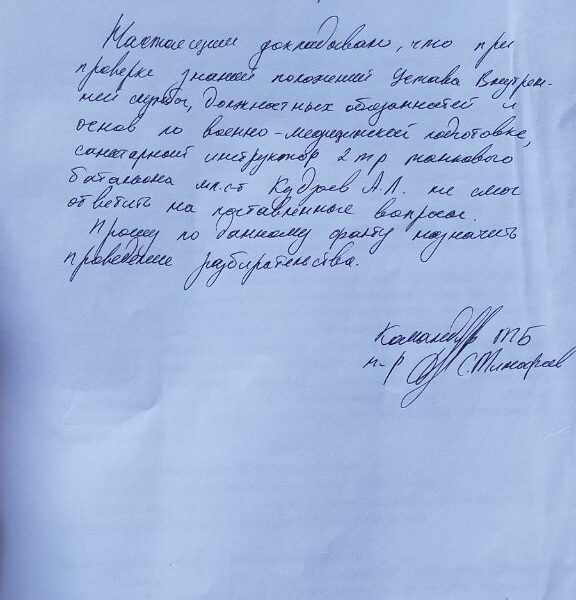 Настоящим докладываю, что при
проверке знаний положений Устава Внутрен-
ней службы, должностных обязанностей и
основ по военно-медицинской подготовке,
санитарный инструктор 2 тр танкового
батальона мл. с-т Кудзоев А.Л. не смог
ответить на поставленные вопросы.
Прошу по данному факту назначить
проведение разбирательства.
Командир ТБ
п-к С. Тимофеев